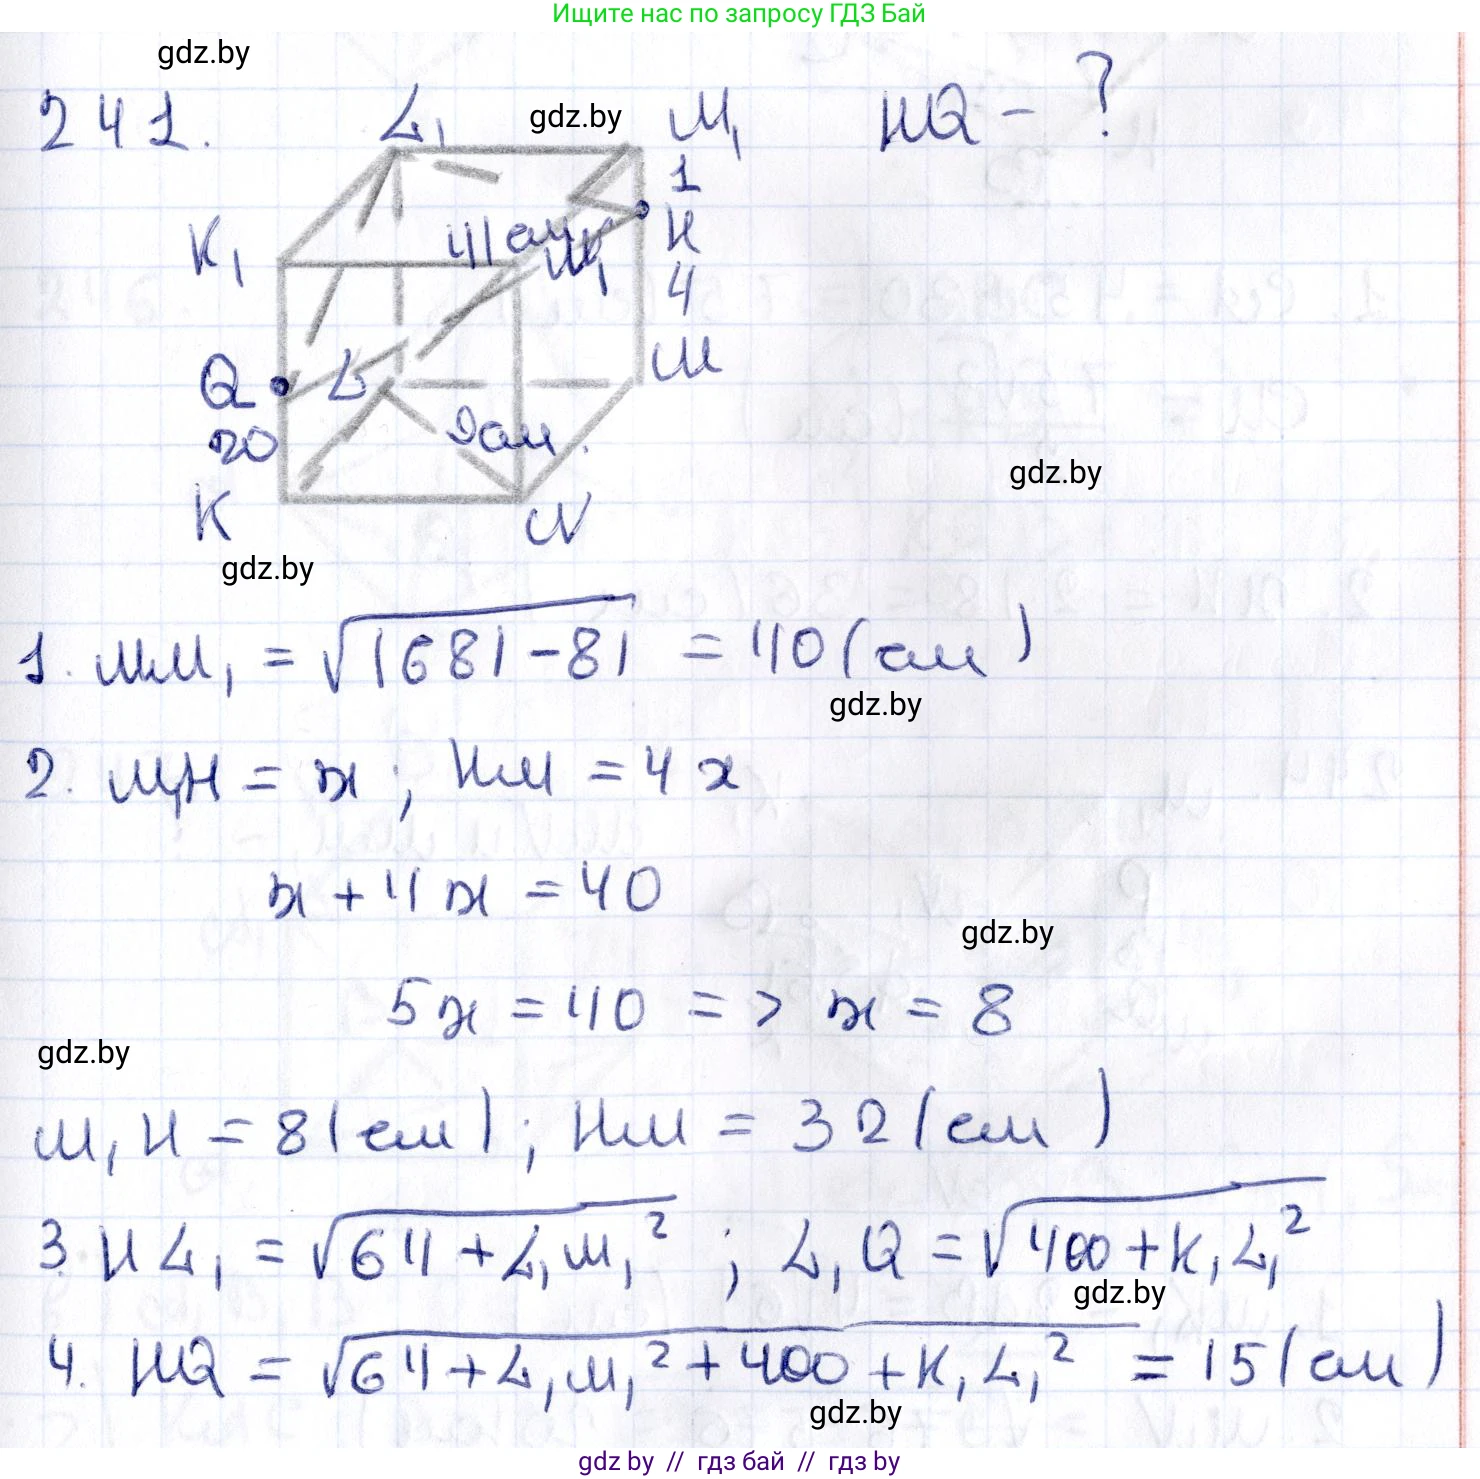 Ищите нас по запросу ГДЗ Бай
gdz.by
241.
L₁
gdz.by
M₁
HQ - ?
1
K₁
41 см
H
4
Q
L
M
20
9 см.
gdz.by
K
N
gdz.by
1. MM₁ = √(1681-81) = 40 (см)
gdz.by
2. M₁H = x; HM = 4x
x + 4x = 40
gdz.by
5x = 40 => x = 8
gdz.by
M₁H = 8 (см); HM = 32 (см)
3. HL₁ = √(64 + L₁M₁²); L₁Q = √(400 + K₁L₁²)
gdz.by
4. HQ = √(64 + L₁M₁² + 400 + K₁L₁²) = 15 (см)
gdz.by
gdz by // гдз бай // гдз by